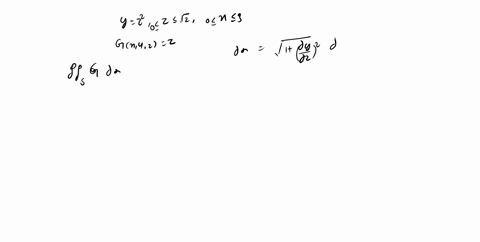 y = z², 0 ≤ z ≤ √2, 0 ≤ x ≤ 3
G(x,y,z) = z
dσ = √(1+(∂y/∂z)²) d
∬_S G dσ